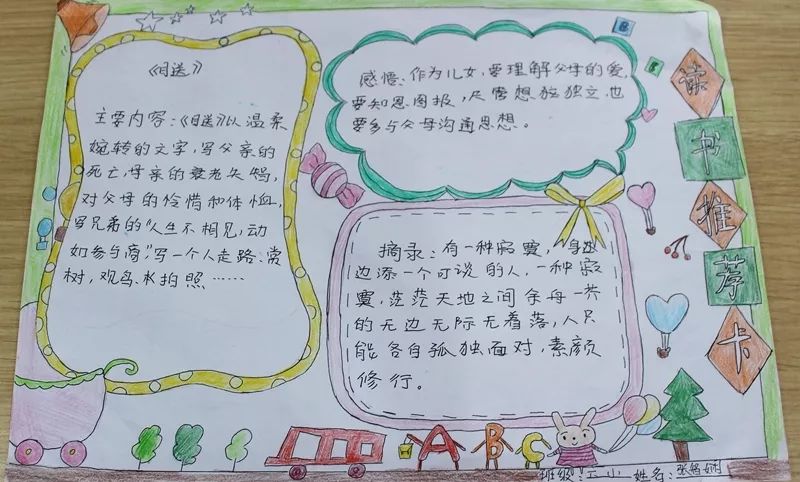 《目送》
主要内容:《目送》以温柔
婉转的文字,写父亲的
死亡,母亲的衰老失鸣,
对父母的怜惜和体恤,
写兄弟的"人生不相见,动
如参与商",写一个人走路、赏
树,观鸟、水拍照……
感悟:作为儿女,要理解父母的爱,
要知恩图报,尽管想放独立,也
要多与父母沟通思想。
摘录:有一种寂寞,身边
边添一个可说的人,一种寂
寞,茫茫天地之间余母一芥
的无边无际无着落,人只
能各自孤独面对,素颜
修行。
读书推荐卡
A B C
班级: 姓名: